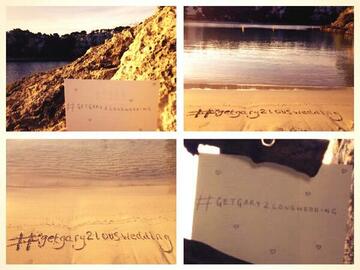 #GETGARY2LOUSWEDDING
#getgary2louswedding
#getgary2louswedding
#GETGARY2LOUSWEDDING